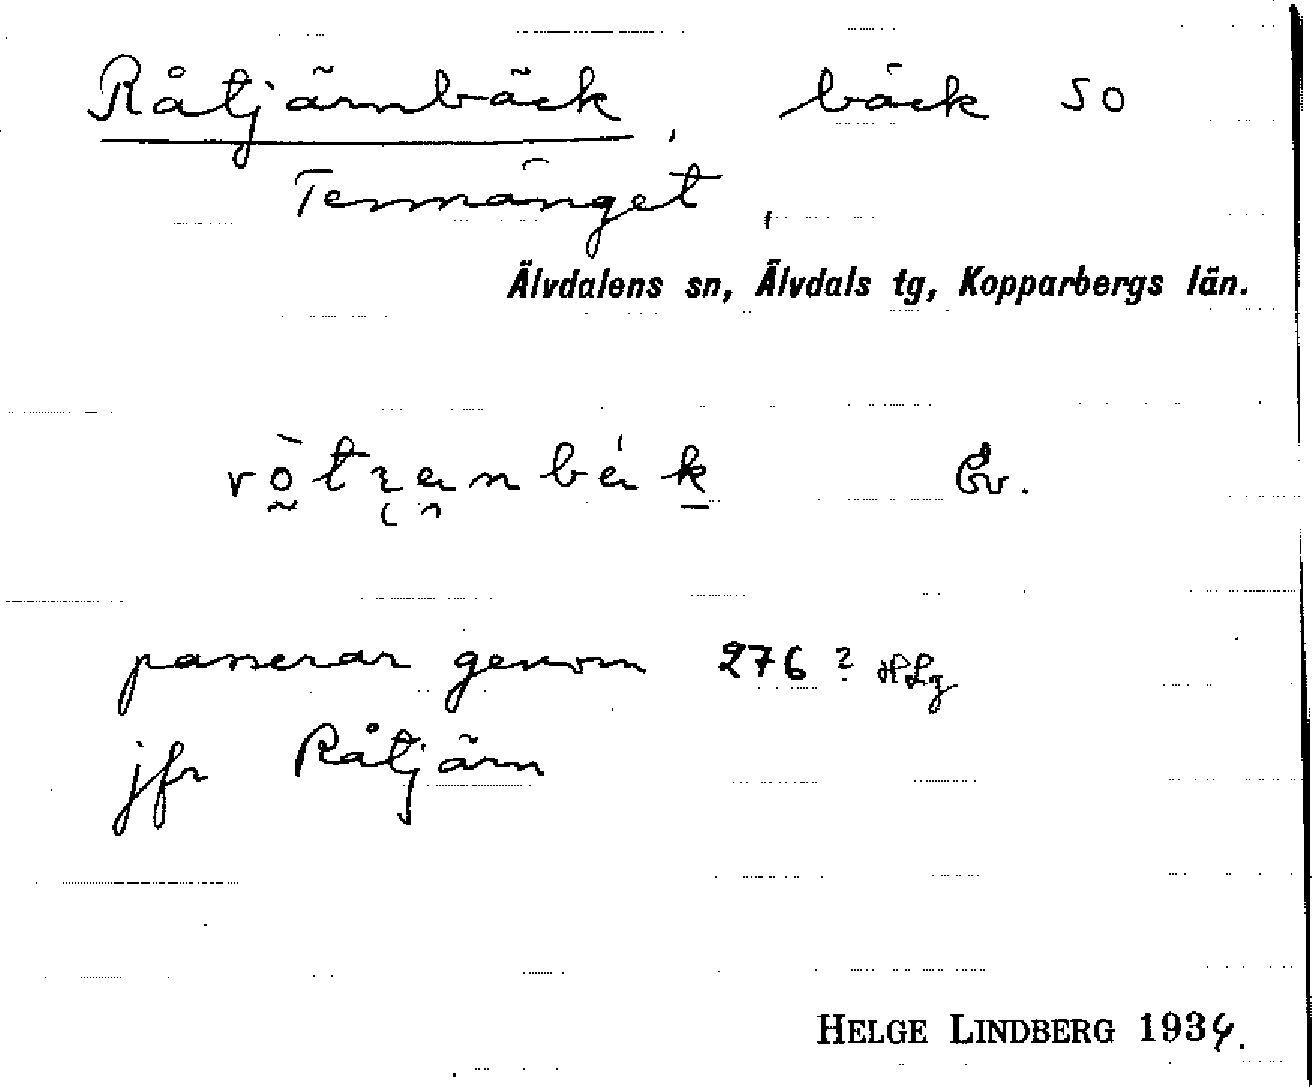 Råtjärnbäck, bäck SO
Tennänget,
Älvdalens sn, Älvdals tg, Kopparbergs län.
passerar genom 276? HLg
jfr Råtjärn
HELGE LINDBERG 1934.